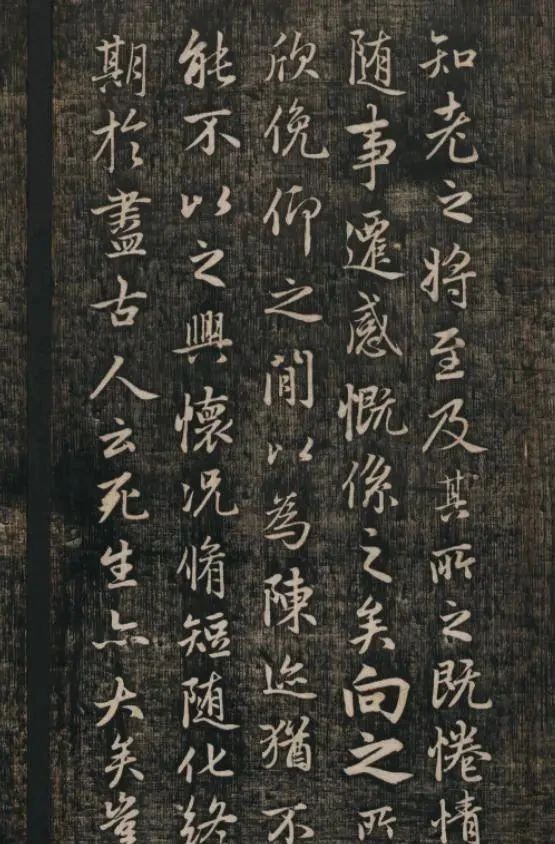 知老之将至及其所之既惓情
随事遷感慨係之矣向之所
欣俛仰之閒以為陳迹猶不
能不以之興懷况脩短随化終
期於盡古人云死生亦大矣豈